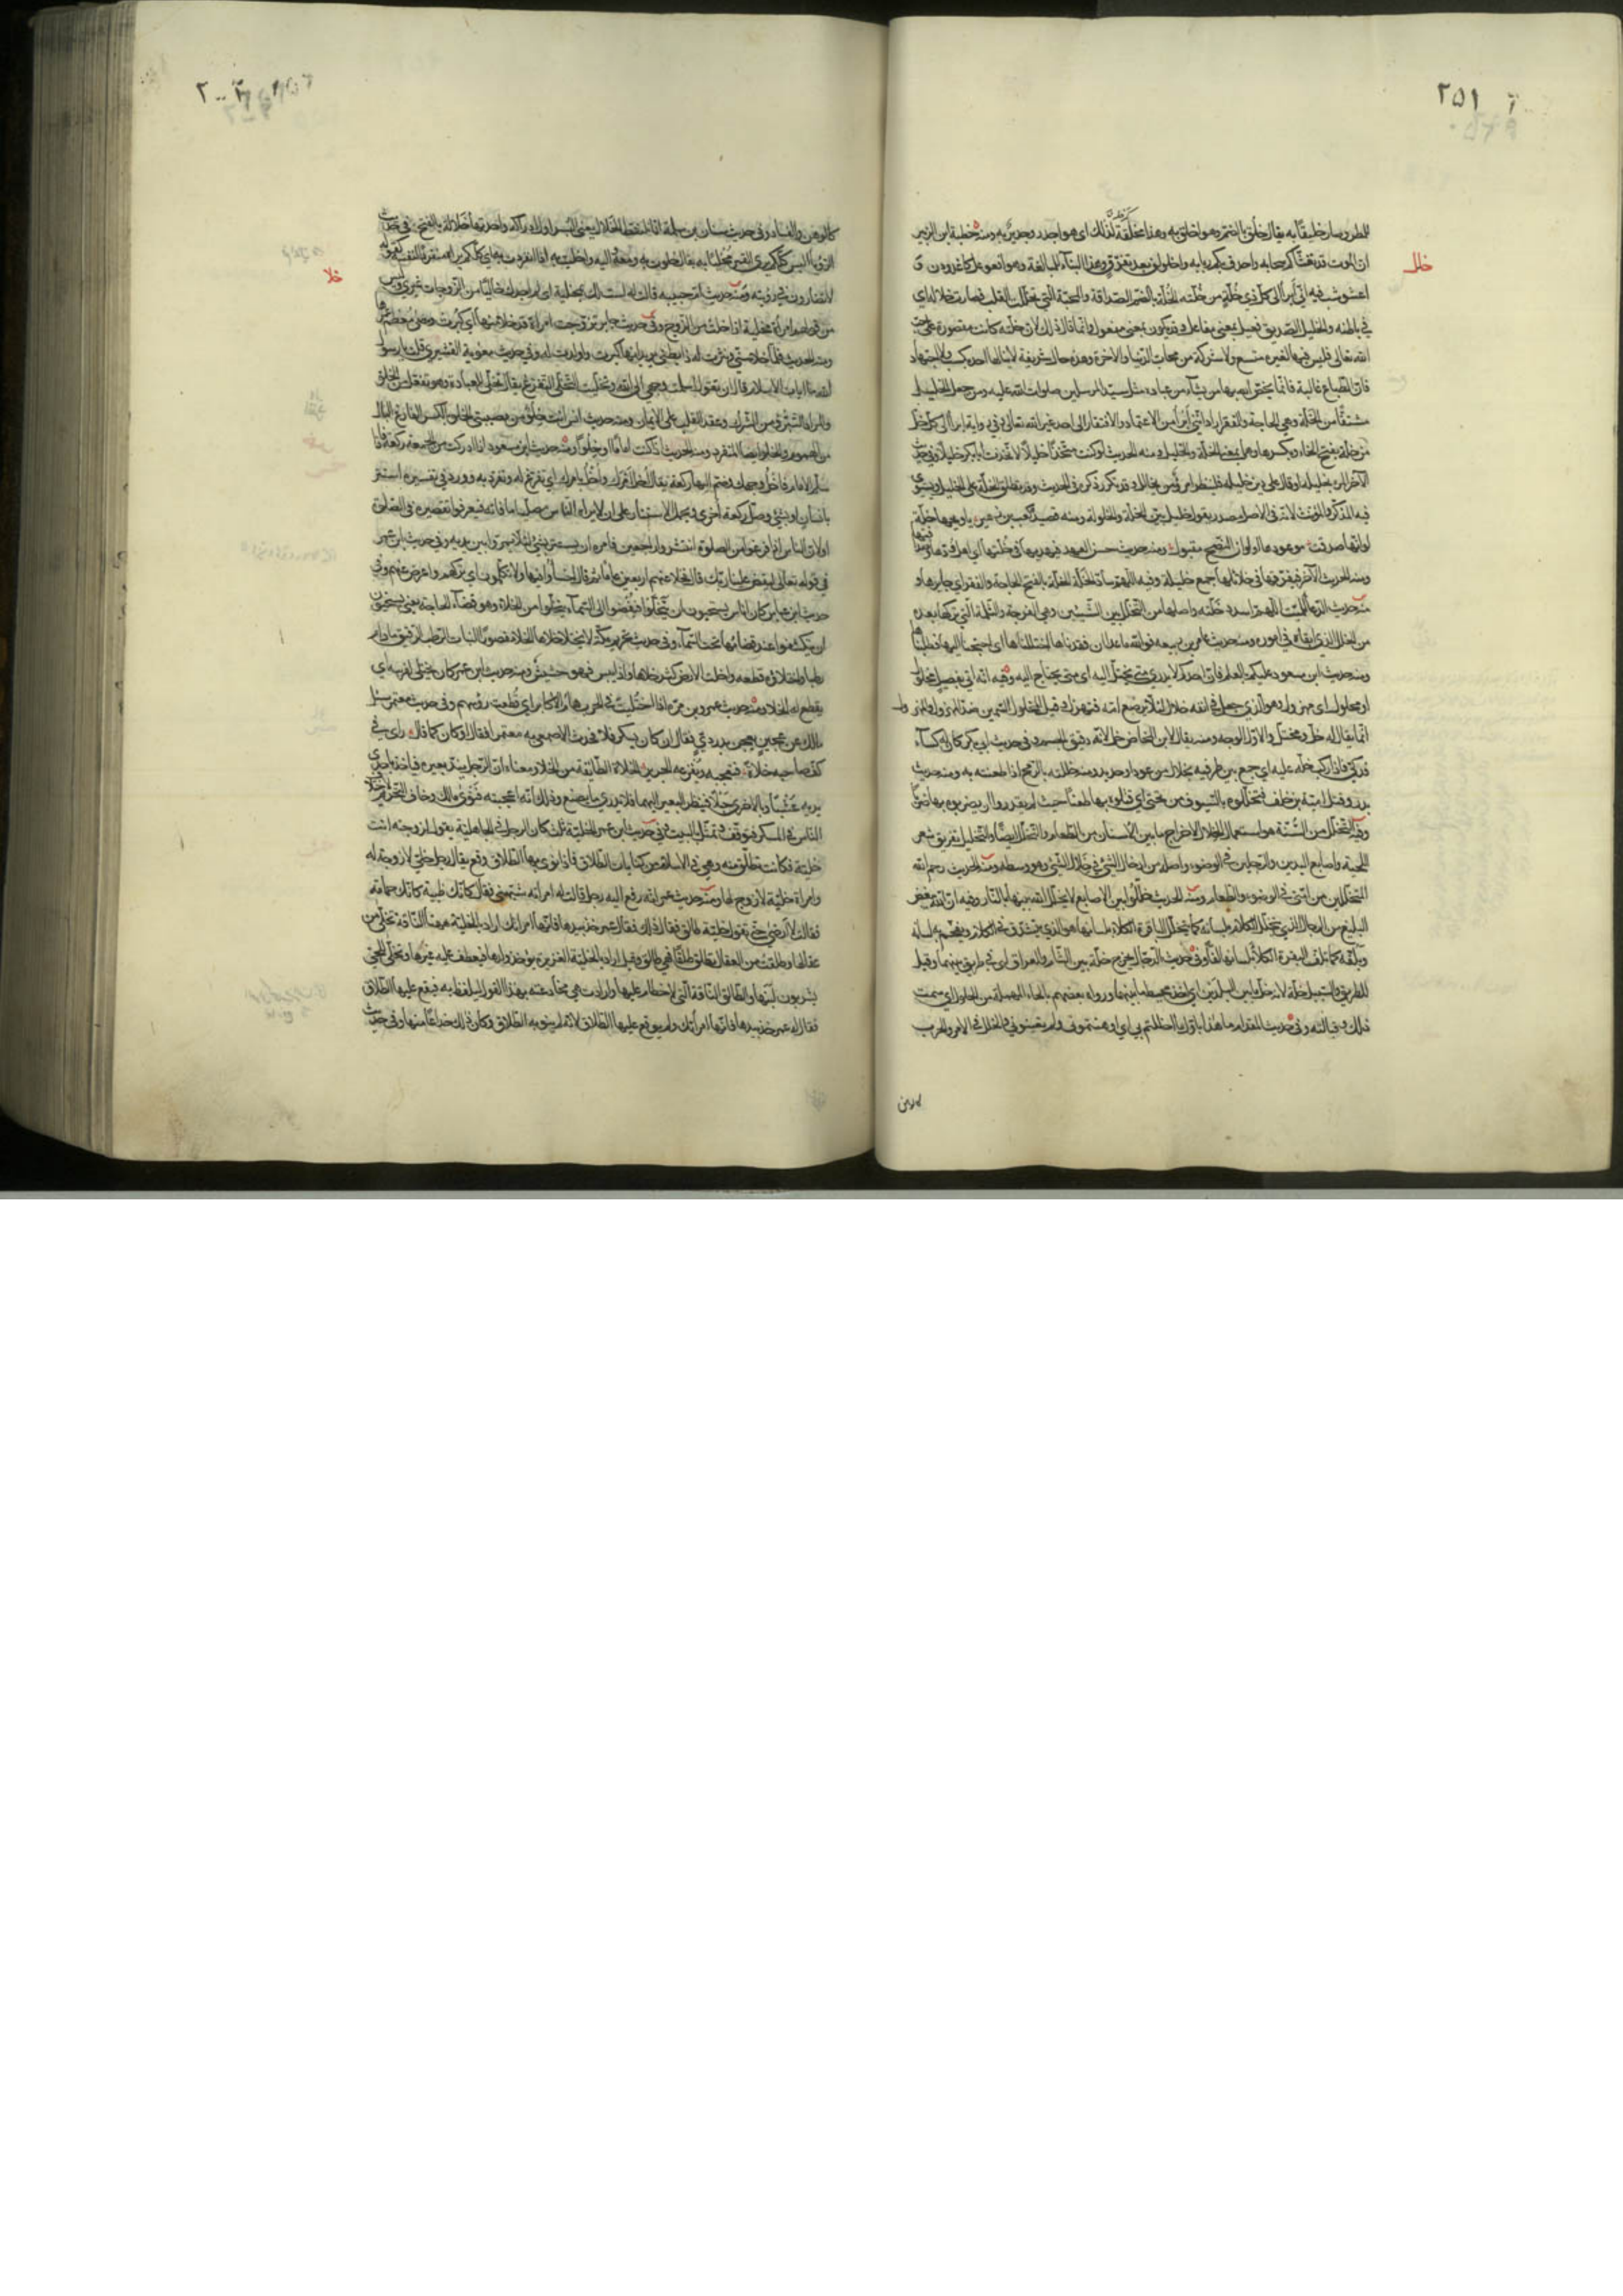 ٢٥١
خلل
للمطر وصار خليقا به يقال خلق بالضم وهو اخلق به وهذا مخلقة لذلك اى هو اجدر وجدير به ومنه خطبة ابن الزبير
ان الموت قد تغشاكم سحابه واحدق بكم ربابه واخلولق بعد تفرق وهذا البناء للمبالغة وهو افعوعل كاغدودن
اعشوشب فيه انى ابرأ الى كل ذى خلة من خلته الخلة بالضم الصداقة والمحبة التى تخللت القلب فصارت خلاله اى
فى باطنه والخليل الصديق فعيل بمعنى مفاعل وقد يكون بمعنى مفعول وانما قال ذلك لان خلته كانت مقصورة على حب
الله تعالى فليس فيها لغيره متسع ولا شركة من محاب الدنيا والاخرة وهذه حال شريفة لا ينالها احد بكسب ولا اجتهاد
فان الطباع غالبة فانما يختص الله بها من يشاء من عباده مثل سيد المرسلين صلوات الله عليه ومن جعل الخليل
مشتقا من الخلة وهى الحاجة والفقر اراد اننى ابرأ من الاعتماد والافتقار الى احد غير الله تعالى وفى رواية ابرأ الى كل خل
من خلته بفتح الخاء وبكسرها وهما بمعنى الخلة والخليل ومنه الحديث لو كنت متخذا خليلا لاتخذت ابا بكر خليلا وفى حديث
الاخر المرء بخليله او قال على دين خليله فلينظر امرؤ من يخالل وقد تكرر ذكره فى الحديث وقد تطلق الخلة على الخليل ويستوى
فيه المذكر والمؤنث لانه فى الاصل مصدر بقول خليل بين الخلة والخلولة ومنه قصيد كعب بن زهير يا ويحها خلة
لو انها صدقت موعودها او لو ان النصح مقبول ومنه حديث حسن العهد فيهديها فى خلتها اى اهل ودها
ومنه الحديث الآخر فيفرقها فى خلائلها جمع خليلة وفيه اللهم ساد الخلة الخلة بالفتح الحاجة والفقر اى جابرها
منه حديث الدعاء للميت اللهم اسدد خلته واصلها من التخلل بين الشيئين وهى الفرجة والثلمة التى تركها بعده
من الخلل الذى ابقاه فى اموره ومنه حديث عامر بن ربيعه فوالله ما عدا ان فقدناها اختللناها اى احتجنا اليها فطلبناها
ومنه حديث ابن مسعود عليكم بالعلم فان احدكم لا يدرى متى يختل اليه اى متى يحتاج اليه وفيه انه اتى بفصيل مخلول
او محلول اى مهزول وهو الذى جعل فى انفه خلال لئلا يرضع امه فتهزل وقيل المخلول السمين ضد المهزول والمهزول
انما يقال له خل ومختل والاول الوجه ومنه يقال لابن المخاض خل لانه دقيق الجسم وفى حديث ابى بكر كان له كساء
فدكى فاذا ركب خله عليه اى جمع بين طرفيه بخلال من عود او حديد ومنه خللته بالرمح اذا طعنته به ومنه حديث
بدر وقتل امية بن خلف فتخللوه بالسيوف من تحتى اى قتلوه بها طعنا حيث لم يقدروا ان يضربوه بها ضربا
وفيه التخلل من السنة هو استعمال الخلال لاخراج ما بين الاسنان من الطعام والتخلل ايضا والتخليل تفريق شعر
اللحية واصابع اليدين والرجلين فى الوضوء واصله من ادخال الشئ فى خلال الشئ وهو وسطه ومنه الحديث رحم الله
المتخللين من امتى فى الوضوء والطعام ومنه الحديث خللوا بين الاصابع لا يخلل الله بينها بالنار وفيه ان الله يبغض
البليغ من الرجال الذى يتخلل الكلام بلسانه كما تتخلل الباقرة الكلأ بلسانها هو الذى يتشدق فى الكلام ويفخم به لسانه
ويلفه كما تلف البقرة الكلأ بلسانها لفا وفى حديث الدجال يخرج من خلة بين الشام والعراق اى فى طريق بينهما وقيل
للطريق والسبيل خلة لانه خل ما بين البلدين اى اخذ مخيط ما بينهما ورواه بعضهم بالحاء المهملة من الحلول اى سمت
ذلك وقبالته وفى حديث المقدام ما هذا باول ما اخللتم بى اى اوهنتمونى ولم تعينونى والخلل فى الامر والحرب
كالوهن
خلا
كالوهن والفساد وفى حديث سنان بن سلمة انا نلتقط الخلال يعنى البسر اول ادراكه واحدتها خلالة بالفتح فى حديث
الرؤيا اليس كلكم يرى القمر مخليا به يقال خلوت به ومعه واليه واخليت به اذا انفردت به اى كلكم يراه منفردا لنفسه كقوله
لا تضارون فى رؤيته ومنه حديث ام حبيبه قالت له لست لك بمخلية اى لم اجدك خاليا من الزوجات غيرى وليس
من قولهم امرأة مخلية اذا خلت من الزوج وفى حديث جابر تزوجت امراة قد خلا منها اى كبرت ومضى معظم عمرها
ومنه الحديث فلما خلا سنى ونثرت له ذا بطنى يريد انها كبرت واولدت له وفى حديث معوية القشيرى قلت يا رسول
الله ما آيات الاسلام قال ان تقول اسلمت وجهى الى الله وتخليت التخلى التفرغ يقال تخلى للعبادة وهو تفعل من الخلو
والمراد التبرؤ من الشرك وعقد القلب على الايمان ومنه حديث انس انت خلو من مصيبتى الخلو بالكسر الفارغ البال
من الهموم والخلو ايضا المنفرد ومنه الحديث اذا كنت اماما او خلوا ومنه حديث ابن مسعود اذا ادركت من الجمعة ركعة فاذا
سلم الامام فاخل وجهك وضم اليها ركعة يقال اخل امرك واخل بامرك اى تفرغ له وتفرد به وورد فى تفسيره استتر
بانسان او بشئ وصل ركعة اخرى ويحمل الاستتار على ان لا يراه الناس مصليا ما فاته فيعرفوا تقصيره فى الصلوة
او لان الناس اذا فرغوا من الصلوة انتشروا راجعين فامره ان يستتر بشئ لئلا يمروا بين يديه وفى حديث ابن عمر
فى قوله تعالى ليقض علينا ربك قال فخلا عنهم اربعين عاما ثم قال اخسئوا فيها ولا تكلمون اى تركهم واعرض عنهم وفى
حديث ابن عباس كان اناس يستحيون ان يتخلوا فيفضوا الى السماء يتخلوا من الخلاء وهو قضاء الحاجة يعنى يستحيون
ان ينكشفوا عند قضائها تحت السماء وفى حديث تحريم مكة لا يختلا خلاها الخلا مقصورا النبات الرطب الرقيق ما دام
رطبا واختلاؤه قطعه واخلت الارض كثر خلاها واذا يبس فهو حشيش ومنه حديث ابن عمر كان يختلى لفرسه اى
يقطع له الخلا ومنه حديث عمرو بن مرة اذا اختليت فى الحرب هام الاكابر اى قطعت رؤسهم وفى حديث معتمر سئل
مالك عن عجين يعجن بدردى فقال ان كان يسكر فلا فحدث الاصمعى به معتمرا فقال او كان كما قال راى فى
كف صاحبه خلاة فتعجبه ويفزعه الجرير الخلاة الطائفة من الخلا ومعناه ان الرجل يند بعيره فياخذ باحدى
يديه عشبا وبالاخرى حبلا فينظر البعير اليهما فلا يدرى ما يصنع وذلك انه اعجبته فتوى مالك وخاف التحريم لاختلاف
الناس فى المسكر فتوقف وتمثل بالبيت وفى حديث ابن عمر الخلية ثلث كان الرجل فى الجاهلية يقول لزوجته انت
خلية فكانت تطلق منه وهى فى الاسلام من كنايات الطلاق فاذا نوى بها الطلاق وقع يقال رجل خلى لا زوجة له
وامراة خلية لا زوج لها ومنه حديث عمر انه رفع اليه رجل قالت له امراته شبهنى فقال كانك ظبية كانك حمامة
فقالت لا ارضى حتى تقول خلية طالق فقال ذلك فقال عمر خذ بيدها فانها امراتك اراد بالخلية ههنا الناقة تخلى من
عقالها وطلقت من العقال تطلق طلقا فهى طالق وقيل اراد بالخلية الغزيرة يؤخذ ولدها فيعطف عليه غيرها وتخلى للحى
يشربون لبنها والطالق الناقة التى لا خطام عليها وارادت هى مخادعته بهذا القول ليلفظ به فيقع عليها الطلاق
فقال له عمر خذ بيدها فانها امراتك ولم يوقع عليها الطلاق لانه لم ينو به الطلاق وكان ذلك خداعا منها وفى حديث